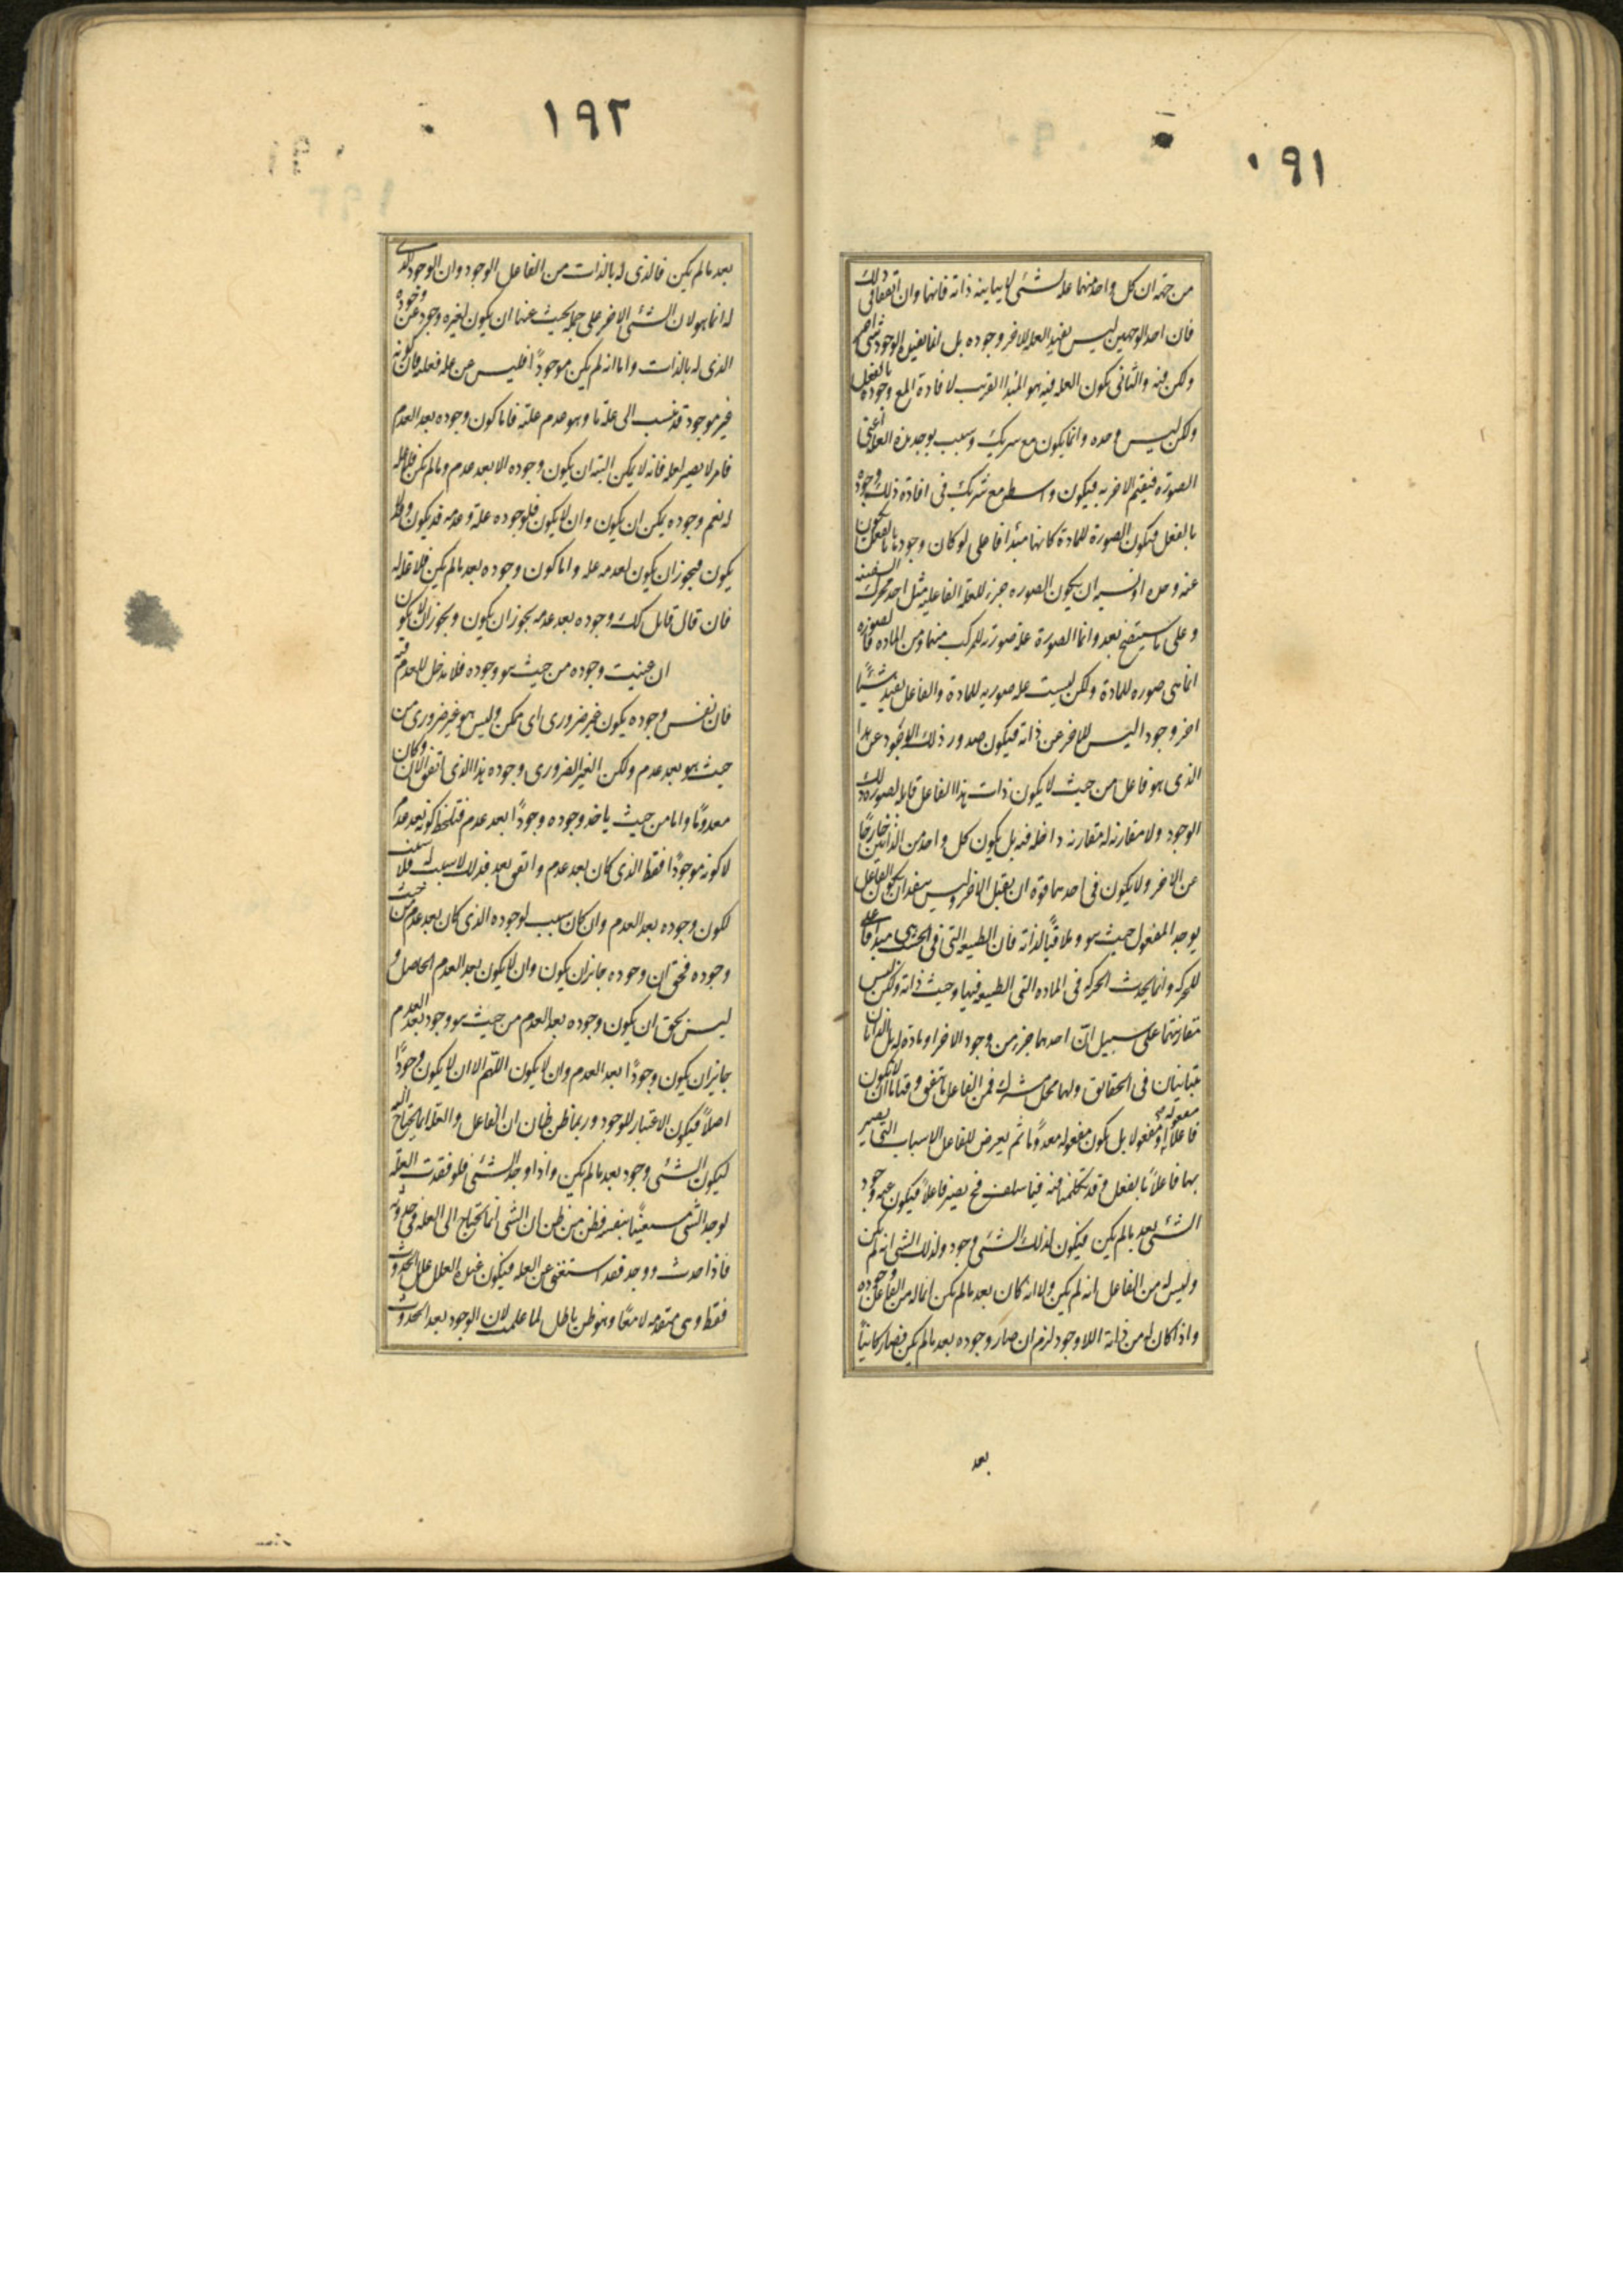 ١٩١
من جهة ان كل واحد منهما علة لشئ لا يباينه ذاته فانهما وان اتفقا فى ذلك
فان احد الوجهين ليس يفيد العله للاخر وجوده بل انما يفيد الوجود شئ اخر
ولكن فيه والثانى يكون العله فيه هو المبدا القريب لافادة المع وجوده بالفعل
ولكن ليس وحده وانما يكون مع شريك وسبب يوجد هذه العلة اعنى
الصوره فيقيم الاخر به فيكون واسطه مع شريك فى افادة ذلك وجوده
بالفعل فيكون الصورة للمادة كانها مبدا فاعلى لو كان وجودها بالفعل يكون
عنه وحده او يشبه ان يكون الصوره جزء للعلة الفاعليه مثل احد محركى السفينه
وعلى ما سيتضح بعد وانما الصورة علة صوريه للمركب منها ومن الماده فالصوره
انما هى صوره للمادة ولكن ليست علة صوريه للمادة والفاعل يفيد شيئًا
اخر وجودا ليس للاخر عن ذاته فيكون صدور ذلك الوجود عن هذا
الذى هو فاعل من حيث لا يكون ذات هذا الفاعل قابله لصورة ذلك
الوجود ولا مقارنه له مقارنه داخله فيه بل يكون كل واحد من الذاتين خارجًا
عن الاخر ولا يكون فى احدهما قوة ان يقبل الاخر وليس يبعد ان يكون الفاعل
يوجد المفعول حيث هو وملاقيًا لذاته فان الطبيعه التى فى الخشب هى مبدا فاعلى
للحركه وانما يحدث الحركه فى الماده التى الطبيعه فيها وحيث ذاته ولكن ليس
مقارنتهما على سبيل ان احدهما جزء من وجود الاخر او مادة له بل الذاتان
متباينان فى الحقايق ولهما محل مشترك فمن الفاعل ما يتفق وقتا ما ان لا يكون
فاعلًا ولا مفعوله مفعولا بل يكون مفعوله معدومًا ثم يعرض للفاعل الاسباب التى يصير
بها فاعلًا بالفعل وقد تكلمنا فيه فيما سلف فح يصير فاعلًا فيكون عنه وجود
الشئ بعد ما لم يكن فيكون لذلك الشئ وجود ولذلك الشئ انه لم يكن
وليس له من الفاعل انه لم يكن ولا انه كان بعد ما لم يكن انما له من الفاعل وجوده
واذا كان له من ذاته اللاوجود لزم ان صار وجوده بعد ما لم يكن فصار كائنًا
بعد
١٩٢
بعد ما لم يكن فالذى له بالذات من الفاعل الوجود وان الوجود الذى
له انما هو لان الشئ الاخر على جملة يحيث عنها ان يكون لغيره وجود عن وجوده
الذى له بالذات واما انه لم يكن موجودًا فليس من علة فعلته فان كونه
غير موجود قد ينسب الى علة ما وهو عدم علته فاما كون وجوده بعد العدم
فامر لا يصير لعله فانه لا يمكن البته ان يكون وجوده الا بعد عدم وما لم يكن فلا عله
له نعم وجوده يمكن ان يكون وان لا يكون فلوجوده علة وعدمه قد يكون وقد لا
يكون فيجوز ان يكون لعدمه عله واما كون وجوده بعد ما لم يكن فلا علة له
فان قال قايل كك وجوده بعد عدمه يجوز ان يكون ويجوز ان لا يكون
ان عنيت وجوده من حيث هو وجوده فلا مدخل للعدم فيه
فان نفس وجوده يكون غير ضرورى اى ممكن وليس هو غير ضرورى من
حيث هو بعد عدم ولكن الغير الضرورى وجوده هذا الذى اتفق الان وكان
معدومًا واما من حيث ياخذ وجوده وجودًا بعد عدم فيلحظ كونه بعد عدم
لا كونه موجودًا فقط الذى كان بعد عدم واتفق بعد فذلك لا سبب له فلا سبب
لكون وجوده بعد العدم وان كان سبب لوجوده الذى كان بعد عدم من حيث
وجوده فحق ان وجوده جائز ان يكون وان لا يكون بعد العدم الحاصل و
ليس بحق ان يكون وجوده بعد العدم من حيث هو وجود بعد العدم
جائز ان يكون وجودًا بعد العدم وان لا يكون اللهم الا ان لا يكون وجودًا
اصلًا فيكون الاعتبار للوجود وربما ظن ظان ان الفاعل والعلة انما يحتاج اليه
ليكون الشئ وجود بعد ما لم يكن واذا وجد الشئ فلو فقدت العلة
لوجد الشئ مستغنيًا بنفسه فظن من ظن ان الشئ انما يحتاج الى العله فى حدوثه
فاذا حدث ووجد فقد استغنى عن العله فيكون عنده العلل علل الحدوث
فقط وهى متقدمه لا معًا وهو ظن باطل لما علمت لان الوجود بعد الحدوث